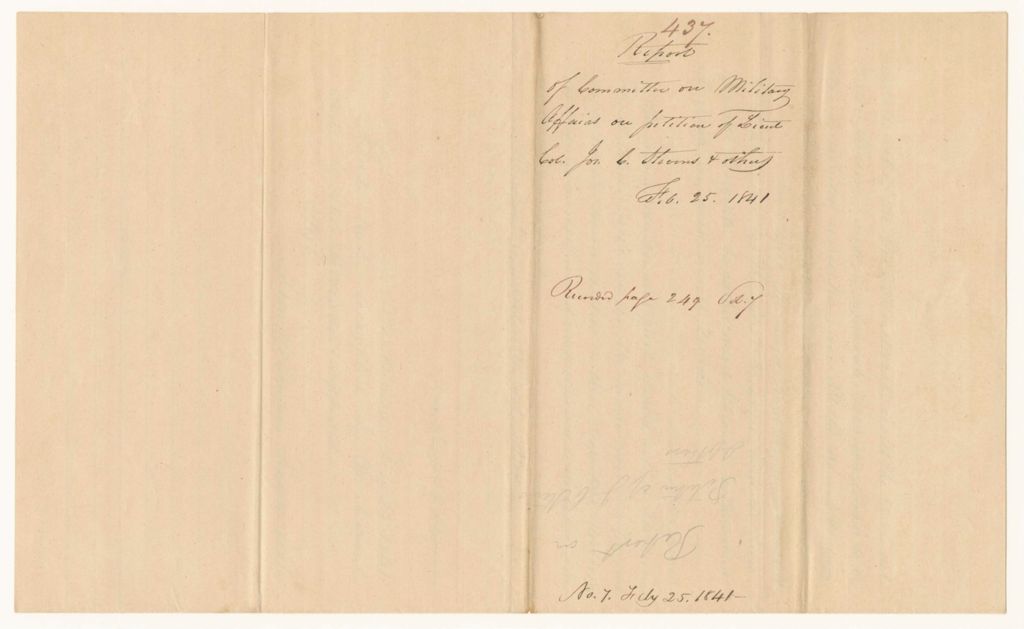 437.
Report
of Committee on Military
Affairs on petition of Lieut
Col. Jon. C. Stevens & others
Feb. 25. 1841
Recorded page 249
Report on
Petition of J C Stevens
& others
No. 7. Feby 25. 1841